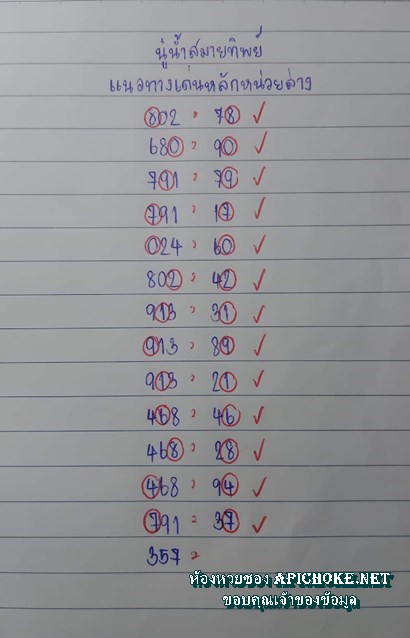 นู๋น้ำสมายทิพย์
แนวทางเด่นหลักหน่วยล่าง
802 = 78 ✓
680 = 90 ✓
791 = 79 ✓
791 = 17 ✓
024 = 60 ✓
802 = 42 ✓
913 = 31 ✓
913 = 89 ✓
913 = 21 ✓
468 = 46 ✓
468 = 28 ✓
468 = 94 ✓
791 = 37 ✓
357 =
ห้องหวยซอง APICHOKE.NET
ขอบคุณเจ้าของข้อมูล